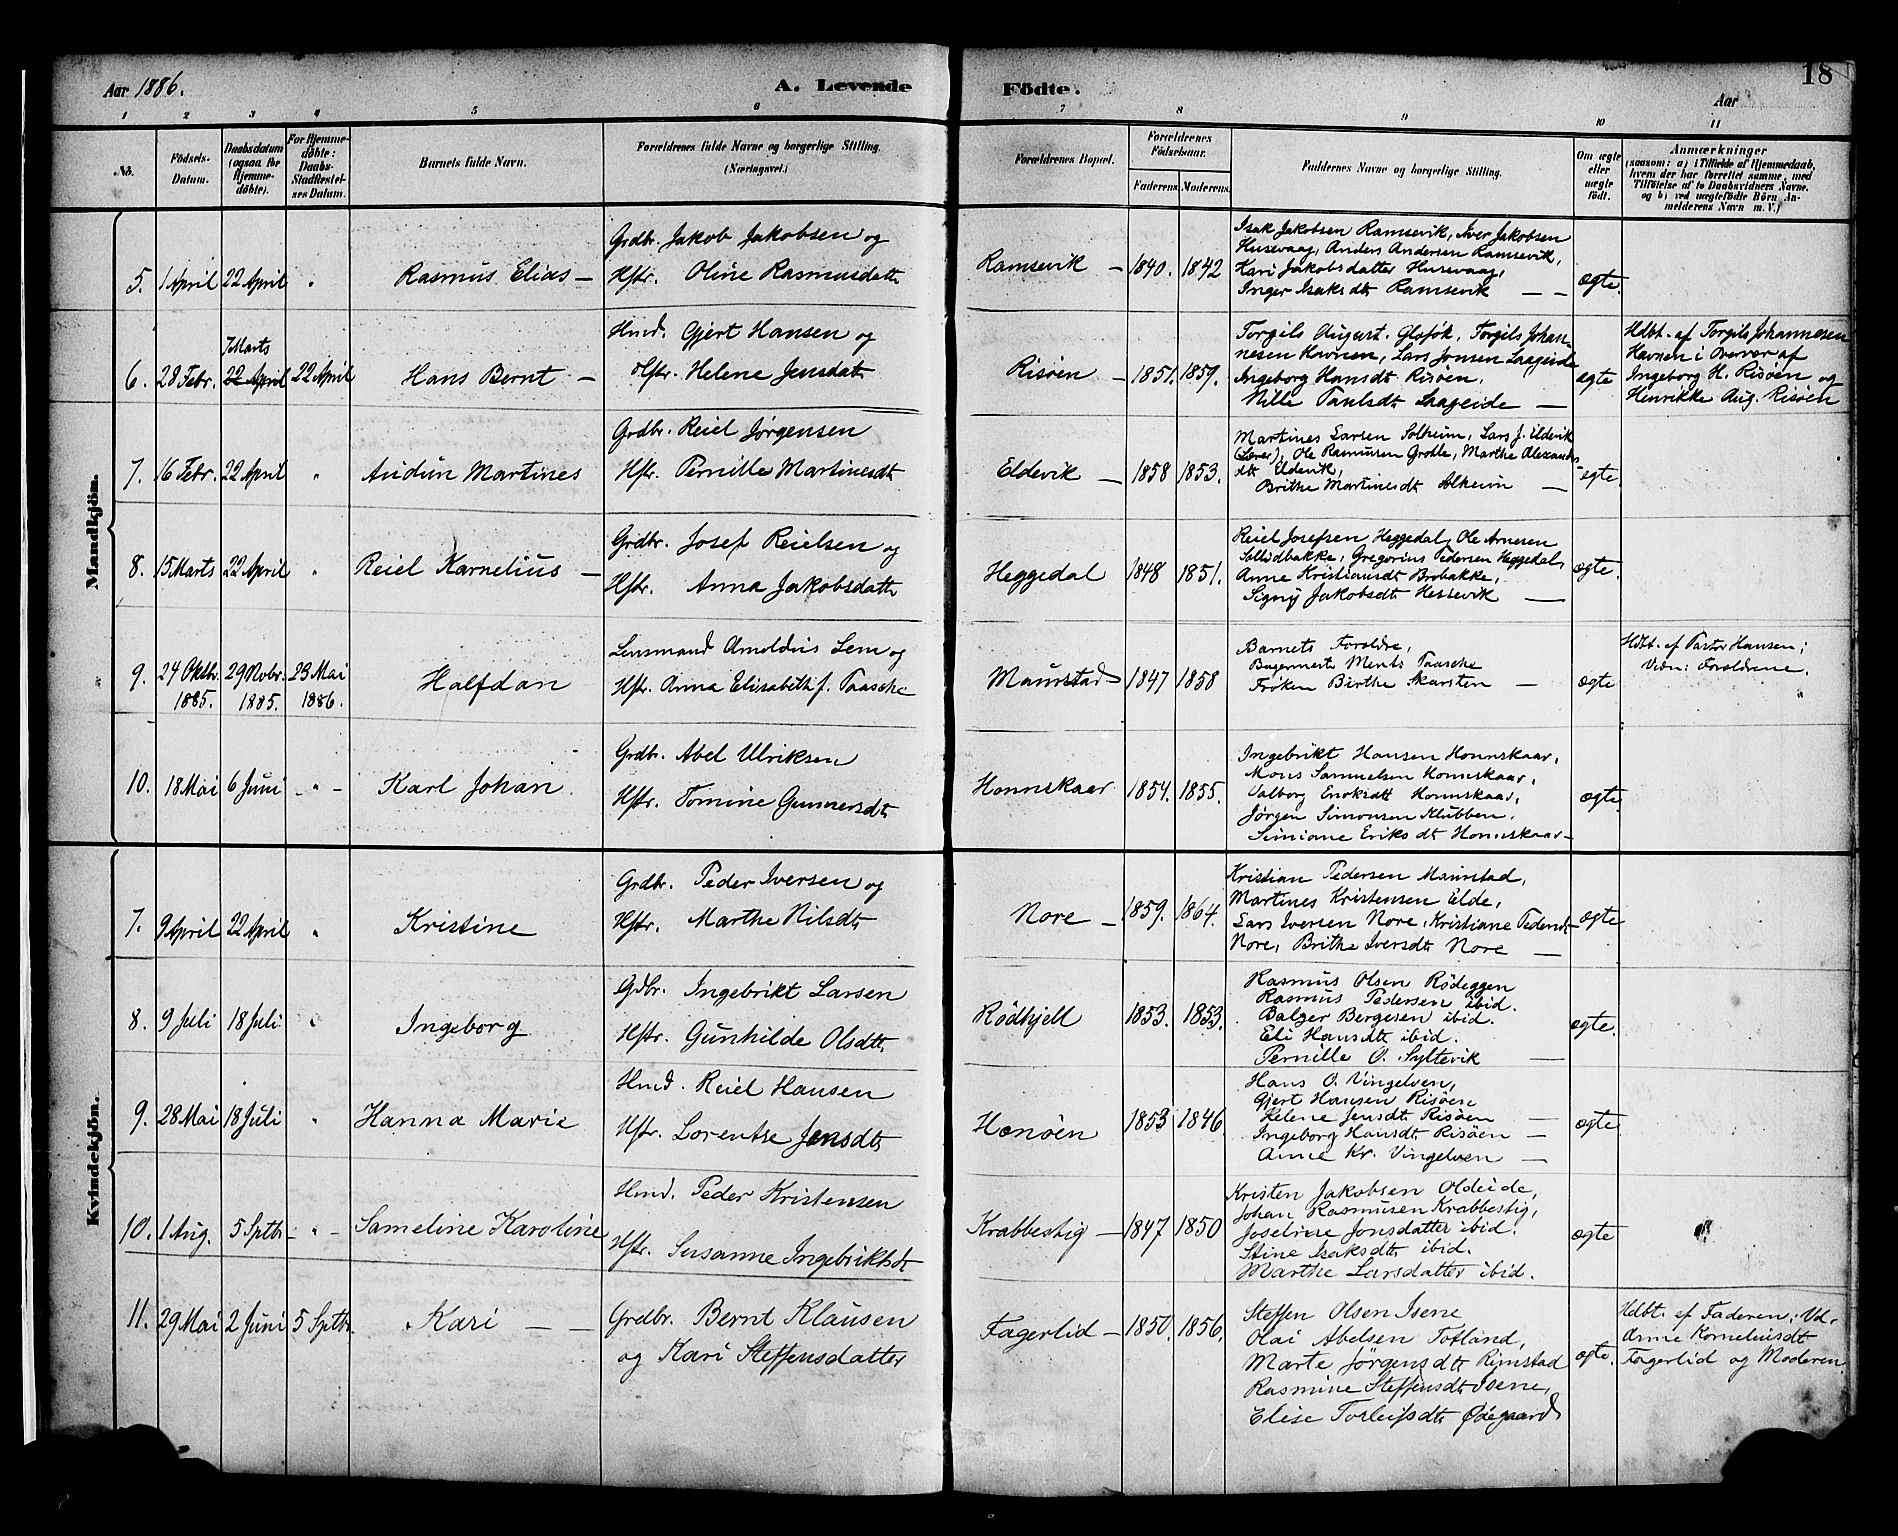 Aar 1886.
A. Levende Födte.
Aar
18
1 2 3 4 5 6 7 8 9 10 11
No.
Födsels-
Datum.
Daabsdatum
(ogsaa for
Hjemme-
döbte).
For Hjemme-
döbte:
Daabs-
Stadfæstel-
ses Datum.
Barnets fulde Navn.
Forældrenes fulde Navne og borgerlige Stilling.
(Næringsvei.)
Forældrenes Bopæl.
Forældrenes
Födselsaar.
Faderens. Moderens.
Faddernes Navne og borgerlige Stilling.
Om ægte
eller
uægte
født.
Anmærkninger
(saasom: a) i Tilfælde af Hjemmedaab,
hvem der har forrettet samme, med
Tilföielse af to Daabsvidners Navne.
og b) ved uægtefödte Börn An-
melderens Navn m. V.)
Mandkjön.
5. 1 April 22 April " Rasmus Elias —
Grdbr. Jakob Jakobsen og
Hstr. Oline Rasmusdatt
Ramsevik — 1840. 1842
Isak Jakobsen Ramsevik, Iver Jakobsen
Husevaag, Anders Andersen Ramsevik,
Kari Jakobsdatter Husevaag,
Inger Isaksdt Ramsevik — —
ægte.
6. 28 Febr. 7 Marts 22 April 22 April Hans Bernt —
Hmd. Gjert Hansen og
Hstr. Helene Jensdatt
Risöen — 1851. 1859.
Torgils August. , Torgils Johan-
nesen Havnen, Lars Jonsen Laageide
Ingeborg Hansdt Risöen,
Nille Paulsdt Laageide —
ægte
Hdbt. af Torgils Johannesen
Havnen i Overvær af
Ingeborg H. Risöen og
Henrikke Aug. Risöen
7. 16 Febr. 22 April " Audun Martines
Grdbr. Reiel Jørgensen
Hstr. Pernille Martinesdt
Eldevik — 1858 1853.
Martines Larsen Solheim, Lars J. Eldevik
(Lærer), Ole Rasmusen Grotle, Marthe Alexanders-
dt Eldevik,
Brithe Martinesdt Solheim —
ægte.
8. 15 Marts 22 April " Reiel Karnelius —
Grdbr. Josef Reielsen og
Hstr. Anna Jakobsdatt
Heggedal 1848 1851.
Reiel Josefsen Heggedal, Ole Arnesen
Gregorius Pedersen Heggedal,
Anne Kristiansdt Brobakke,
Signy Jakobsdt Hessevik —
ægte.
9. 24 Oktbr. 1885. 29 Novbr. 1885. 23 Mai 1886. Halfdan
Lensmand Arnoldus Lem og
Hstr. Anna Elisabeth f. Taasche
Maurstad 1847 1858
Barnets Forældre,
Ments Taasche
Frøken Birthe Skarsten —
ægte
Hdbt. af Pastor Hansen;
Vidn: Forældrene.
10. 18 Mai 6 Juni — " — Karl Johan
Grdbr. Abel Ulriksen
Hstr. Tomine Gunnersdt
Honnskaar 1854. 1855.
Ingebrikt Hansen Honnskaar,
Mons Samuelsen Honnskaar,
Valborg Enoksdt Honnskaar,
Jørgen Simonsen Klubben,
Simiane Eriksdt Honnskaar —
ægte
Kvindekjön.
7. 9 April 22 April " Kristine
Grdbr. Peder Iversen og
Hstr. Marthe Nilsdt
Nore — 1859. 1864.
Kristian Pedersen Maurstad,
Martines Kristensen Elde,
Lars Iversen Nore, Kristiane Pedersdt
Nore, Brithe Iversdt Nore —
ægte
8. 9 Juli 18 Juli " Ingeborg
Gdbr. Ingebrikt Larsen
Hstr. Gunhilde Olsdt
Rödhjell 1853. 1853.
Rasmus Olsen Rödeggen
Rasmus Pedersen ibid.
Balzer Bergesen ibid.
Eli Hansdt ibid.
Pernille O. Syltevik —
ægte.
9. 28 Mai 18 Juli " Hanna Marie
Hmd. Reiel Hansen
Hstr. Lorentse Jensdt
Hanöen 1853 1846
Hans O. Vingelven,
Gjert Hansen Risöen
Helene Jensdt Risöen —
Ingeborg Hansdt Risöen —
Anne Kr. Vingelven —
ægte
10. 1 Aug. 5 Sptbr — " — Sameline Karoline
Hmd. Peder Kristensen
Hstr. Susanne Ingebriktsdt
Krabbestig — 1847 1850
Kristen Jakobsen Oldeide,
Johan Rasmusen Krabbestig,
Joseline Jonsdatter ibid.
Stine Isaksdt ibid.
Marthe Larsdatter ibid.
ægte
11. 29 Mai 2 Juni 5 Sptbr. Kari —
Grdbr. Bernt Klausen
og Kari Steffensdatter
Fagerlid — 1850. 1856.
Steffen Olsen Isene
Olai Abelsen Totland,
Marte Jørgensdt Rimstad
Rasmine Steffensdt Isene,
Elise Torleifsdt Ødegaard
ægte.
Hdbt. af Faderen; Vd.
Anne Kornelinsdt
Fagerlid og Moderen